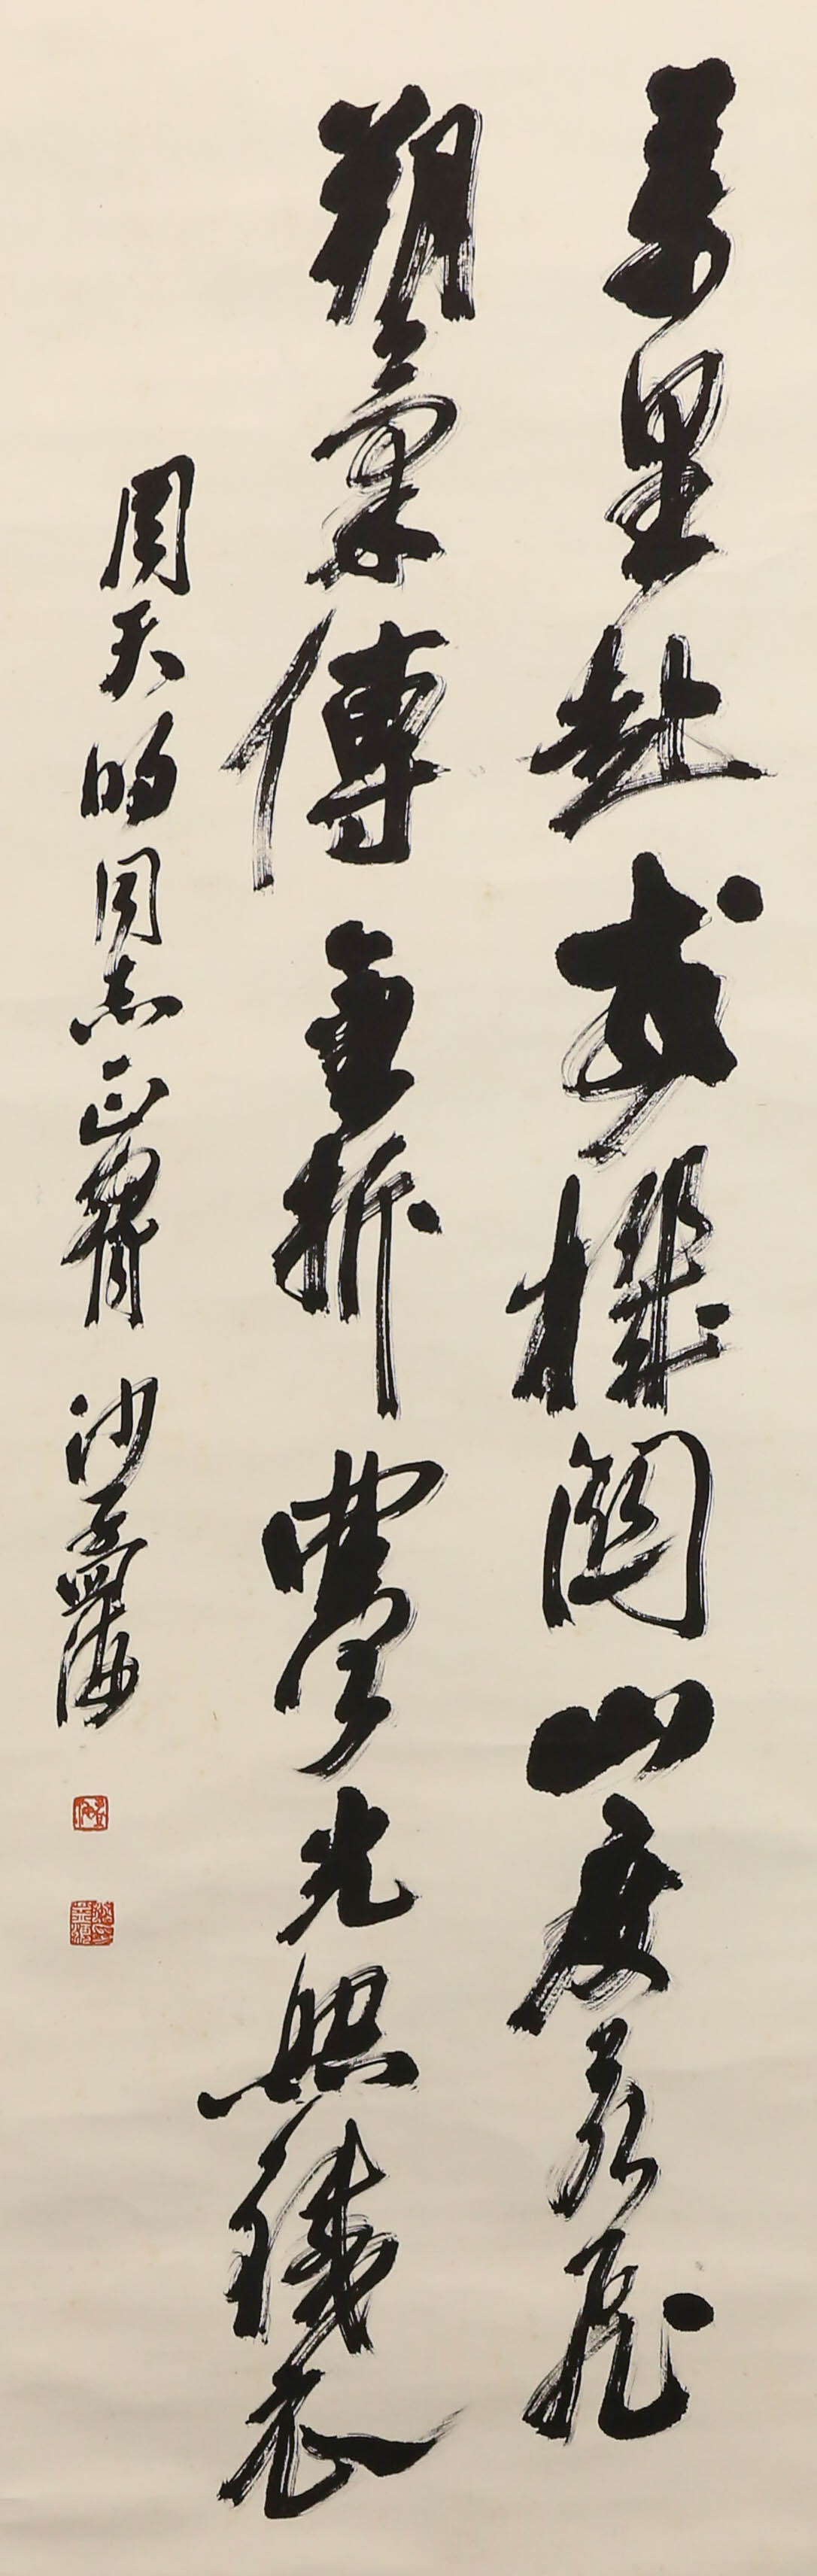 萬里赴戎機關山度若飛
朔氣傳金柝寒光照鐵衣
周天昀同志正 沙孟海